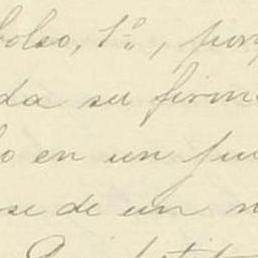 bolso, 1º, por
da su firm
o en un ju
se de un